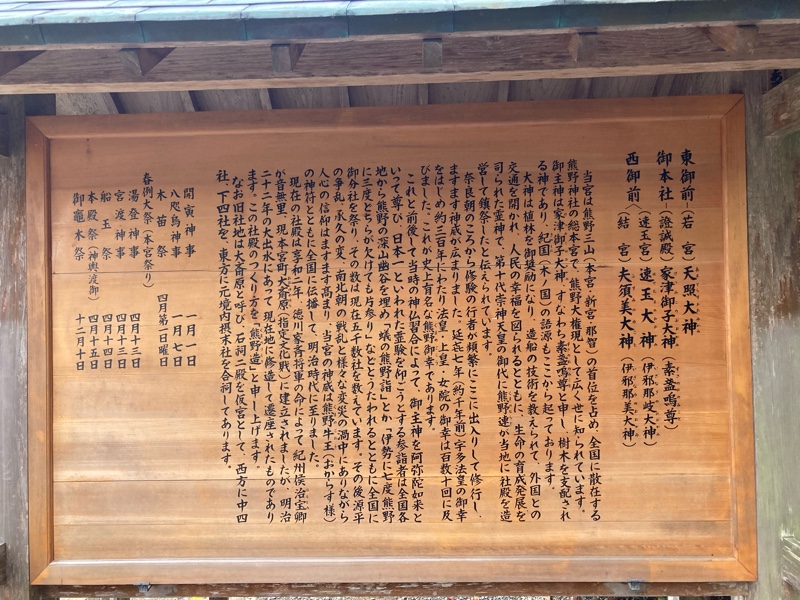 東御前（若宮）天照大神
御本社―證誠殿　家津御子大神（素盞嗚尊）
（速玉宮）速玉大神（伊邪那岐大神）
西御前
（結宮）夫須美大神（伊邪那美大神）
当宮は熊野三山（本宮・新宮・那智）の首位を占め、全国に散在する
熊野神社の総本宮で、熊野大権現として広く世に知られています。
御主神は家津御子大神、すなわち素盞嗚尊と申し、樹木を支配され
る神であり、紀国（木ノ国）の語源もここから起っております。
大神は植林を御奨励になり、造船の技術を教えられて、外国との
交通を開かれ、人民の幸福を図られるとともに、生命の育成発展を
司られた霊神で、第十代崇神天皇の御代に熊野連が当地に社殿を造
営して鎮祭したと伝えられています。
奈良朝のころから修験の行者が頻繁にここに出入りして修行し、
ますます神威が広まりました。延㐂七年（約千年前）宇多法皇の御幸
をはじめ約三百年にわたり法皇・上皇・女院の御幸は百数十回に及
びました。これが史上有名な熊野御幸であります。
これと前後して当時の神仏習合によって、御主神を阿弥陀如来と
いって尊び、日本一といわれた霊験を仰ごうとする参詣者は全国各
地から熊野の深山幽谷を埋め「蟻の熊野詣」とか「伊勢に七度熊野
に三度どちらが欠けても片参り」などとうたわれるとともに全国に
御分社を祭り、その数は現在五千数社を数えています。その後源平
の争乱、承久の変、南北朝の戦乱と様々な変災の渦中にありながら
人心の信仰はますます高まり、当宮の神威は熊野牛王（おからす様）
の神符とともに全国に伝播して、明治時代に至りました。
現在の社殿は享和二年、徳川家斉将軍の命によって紀州侯治宝卿
が音無里、現本宮町大斎原（指定文化戦）に建立されましたが、明治
二十二年の大出水にあって現在地に修造して遷座されたものであり
ます。この社殿のつくり方を「熊野造」と申し上げます。
なお旧社地は大斎原と呼び、石祠二殿を仮宮として、西方に中四
社、下四社を、東方に元境内摂末社を合祀してあります。
開寅神事　一月一日
八咫烏神事　一月七日
木苗祭　四月第一日曜日
春例大祭（本宮祭り）
湯登神事　四月十三日
宮渡神事　四月十三日
船玉祭　四月十四日
本殿祭（神輿渡御）　四月十五日
御竈木祭　十二月十日